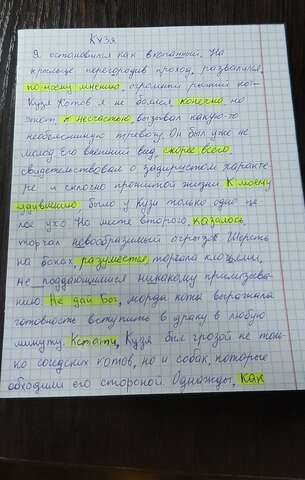 Кузя
Я остановился как вкопанный. На
крыльце перегородив проход, развалился,
по моему мнению, огромный рыжий кот-
Кузя Котов я не боялся конечно, но
этот, к несчастью, вызывал какую-то
необъяснимую тревогу. Он был уже не
молод Его внешний вид, скорее всего
свидетельствовал о задиристом характе-
ре и сложно прожитой жизни К моему
удивлению было у Кузи только одно це
лое ухо На месте второго, казалось
торчал невообразимый огрызок Шерсть
на боках, разумеется, торчала клочьями,
не поддающимися никакому приглажива-
нию. Не дай Бог, морда кота выражала
готовность вступить в драку в любую
минуту. Кстати, Кузя был грозой не толь-
ко соседских котов, но и собак, которые
обходили его стороной. Однажды, как